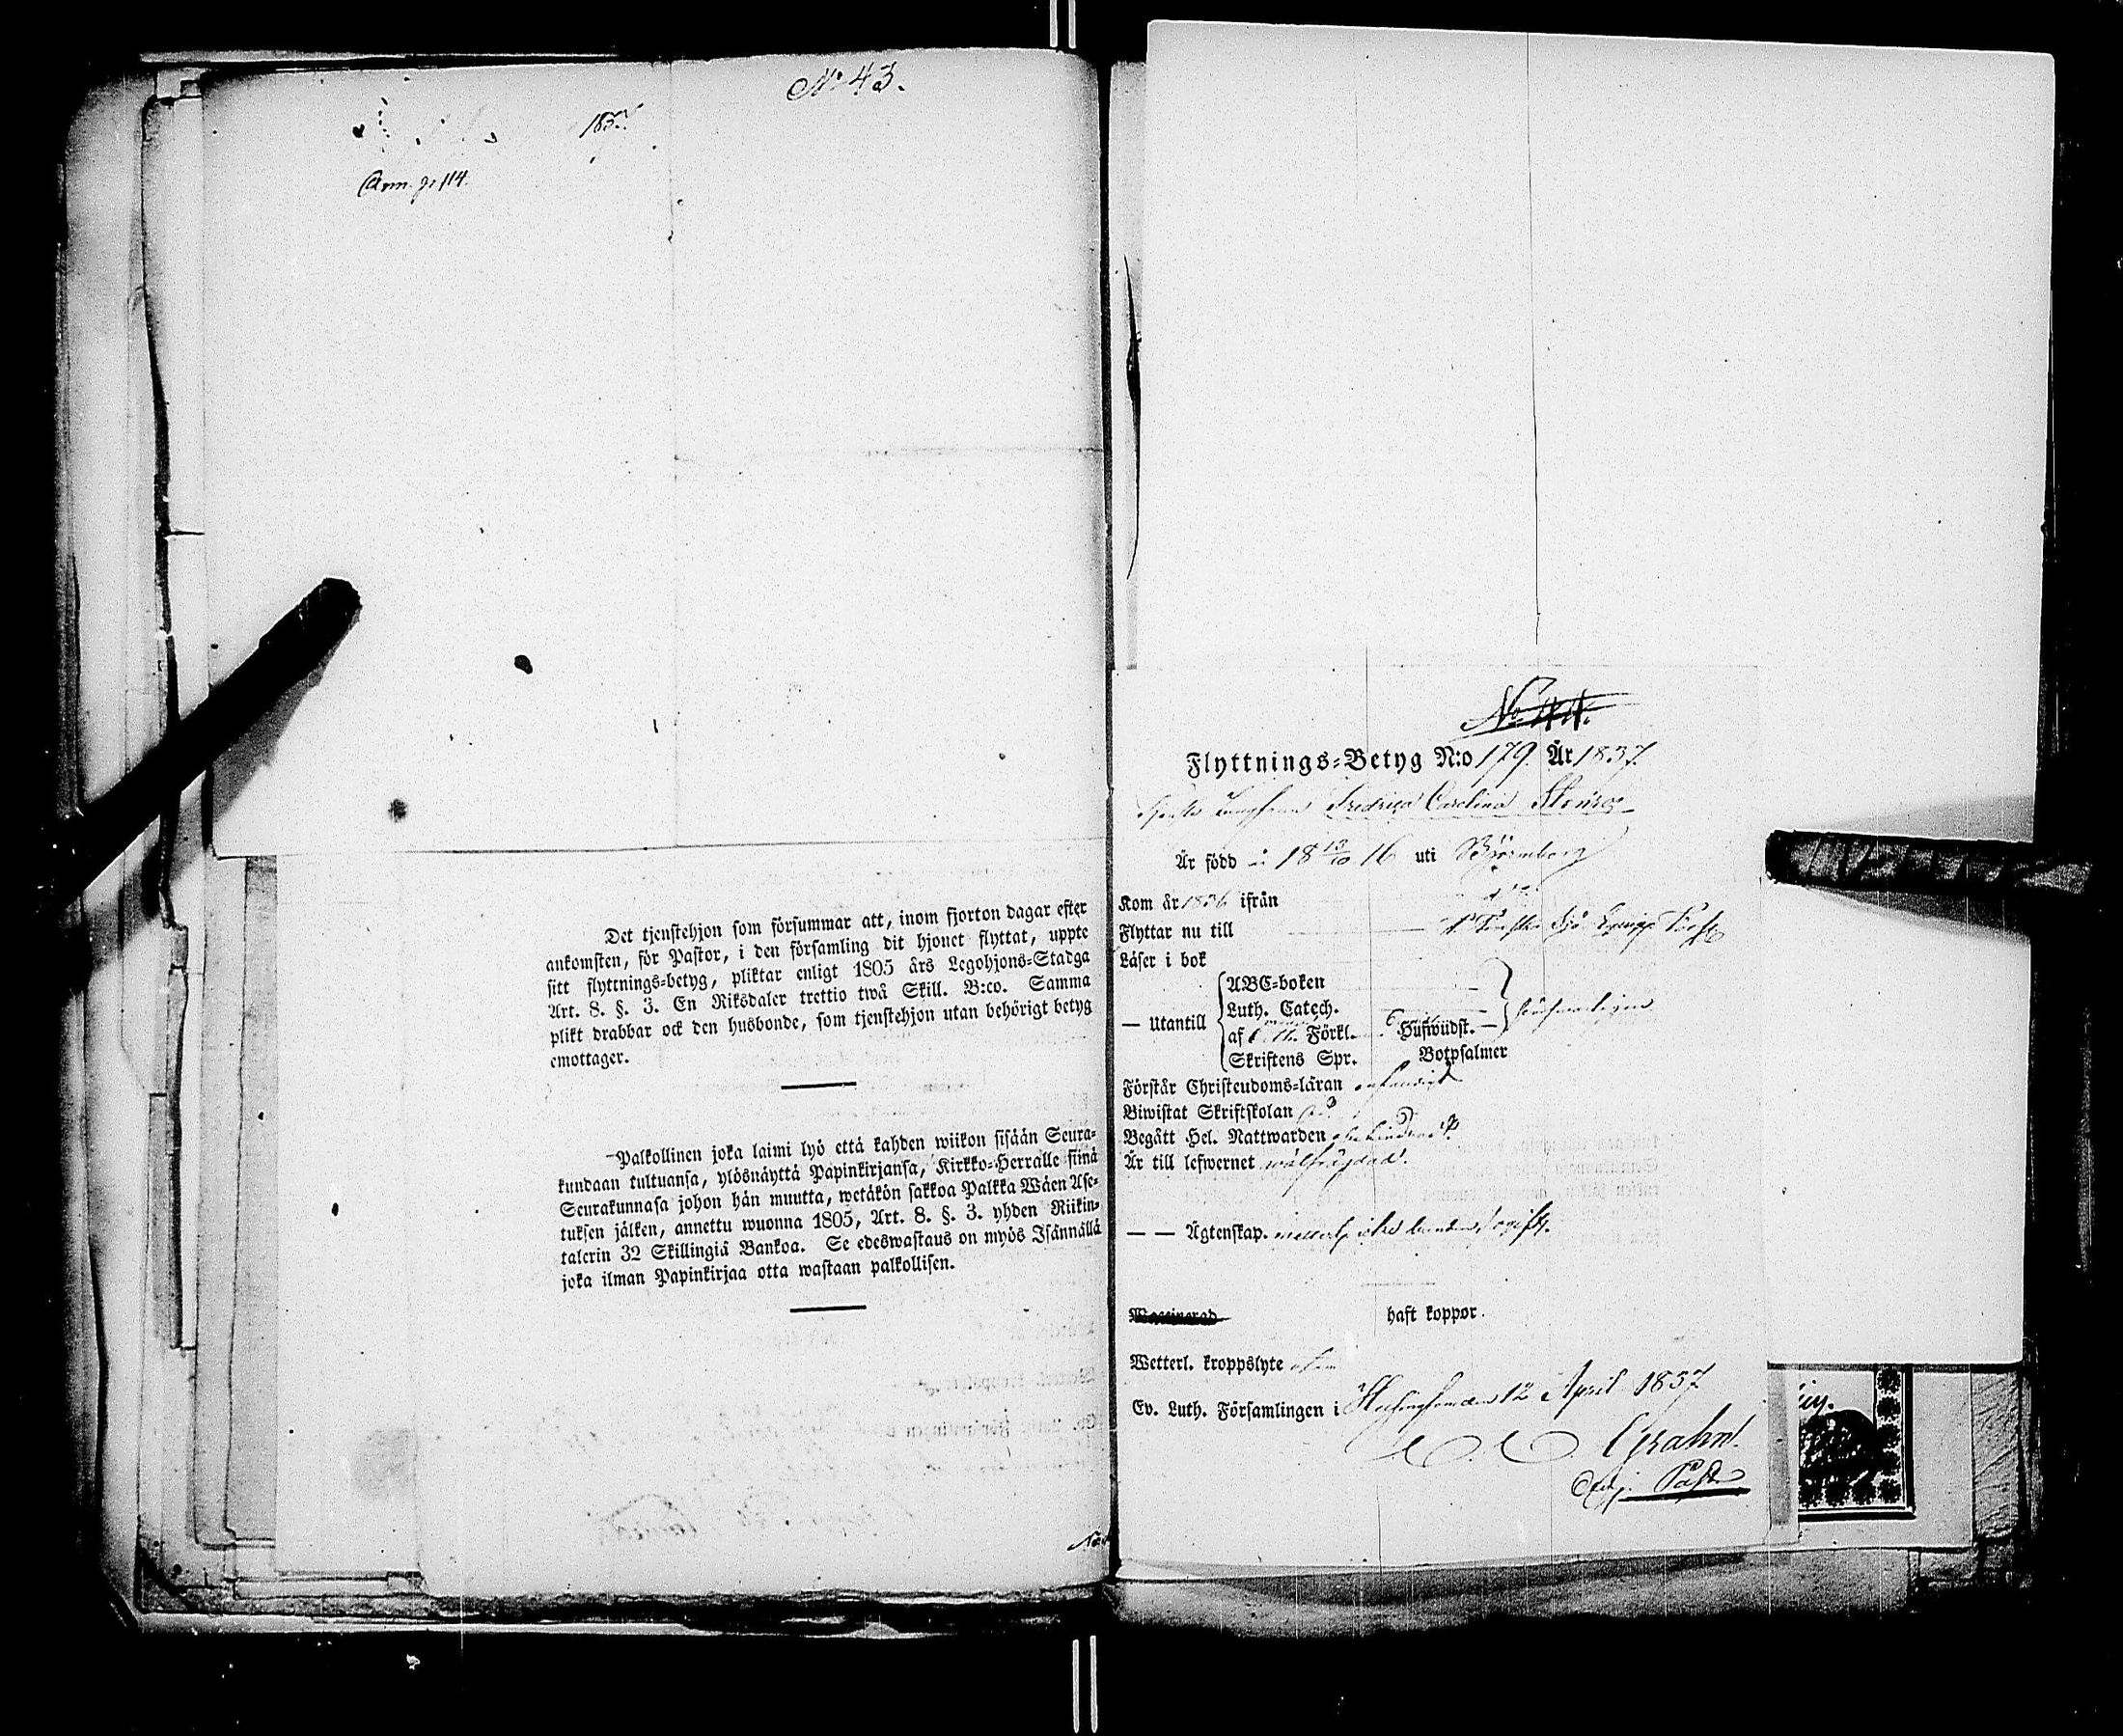 No 43.
1837
Ann. p 114.
Det tjenstehjon som försummar att, inom fjorton dagar efter
ankomsten, för Pastor, i den församling dit hjonet flyttat, uppte
sitt flyttnings-betyg, pliktar enligt 1805 års Legohjons-Stadga
Art. 8. §. 3. En Riksdaler trettio twå Skill. B:co. Samma
plikt drabbar ock den husbonde, som tjenstehjon utan behörigt betyg
emottager.
Palkollinen joka laimi lyö että kahden wiikon sisään Seura-
kundaan tultuansa, ylösnäyttä Papinkirjansa, Kirkko-Herralle siinä
Seurakunnasa johon hän muutta, wetäkön sakkoa Palkka Wäen Ase-
tuksen jälken, annettu wuonna 1805, Art. 8. §. 3. yhden Riikin-
talerin 32 Skillingiä Bankoa. Se edeswastaus on myös Isännällä
joka ilman Papinkirjaa otta wastaan palkollisen.
No 44.
Flyttnings-Betyg N:o 179. År 1837.
Jungfrun Fredrica Carolina
Är född 18 13/10 16 uti Björneborg
Kom år 1836 ifrån
Flyttar nu till
Läser i bok
— Utantill
ABC-boken
Luth. Catech.
af Förkl. Hufwudst.
Skriftens Spr. Botpsalmer
försvarligen
Förstår Christendoms-läran
Biwistat Skriftskolan
Begått Hel. Nattwarden obehindrad
Är till lefwernet wälfrägdad.
— — Ägtenskap. ogift.
Waccinerad haft koppor.
Wetterl. kroppslyte
Ev. Luth. Församlingen i Helsingfors den 12 April 1837
Grahn.
Adj. Past.